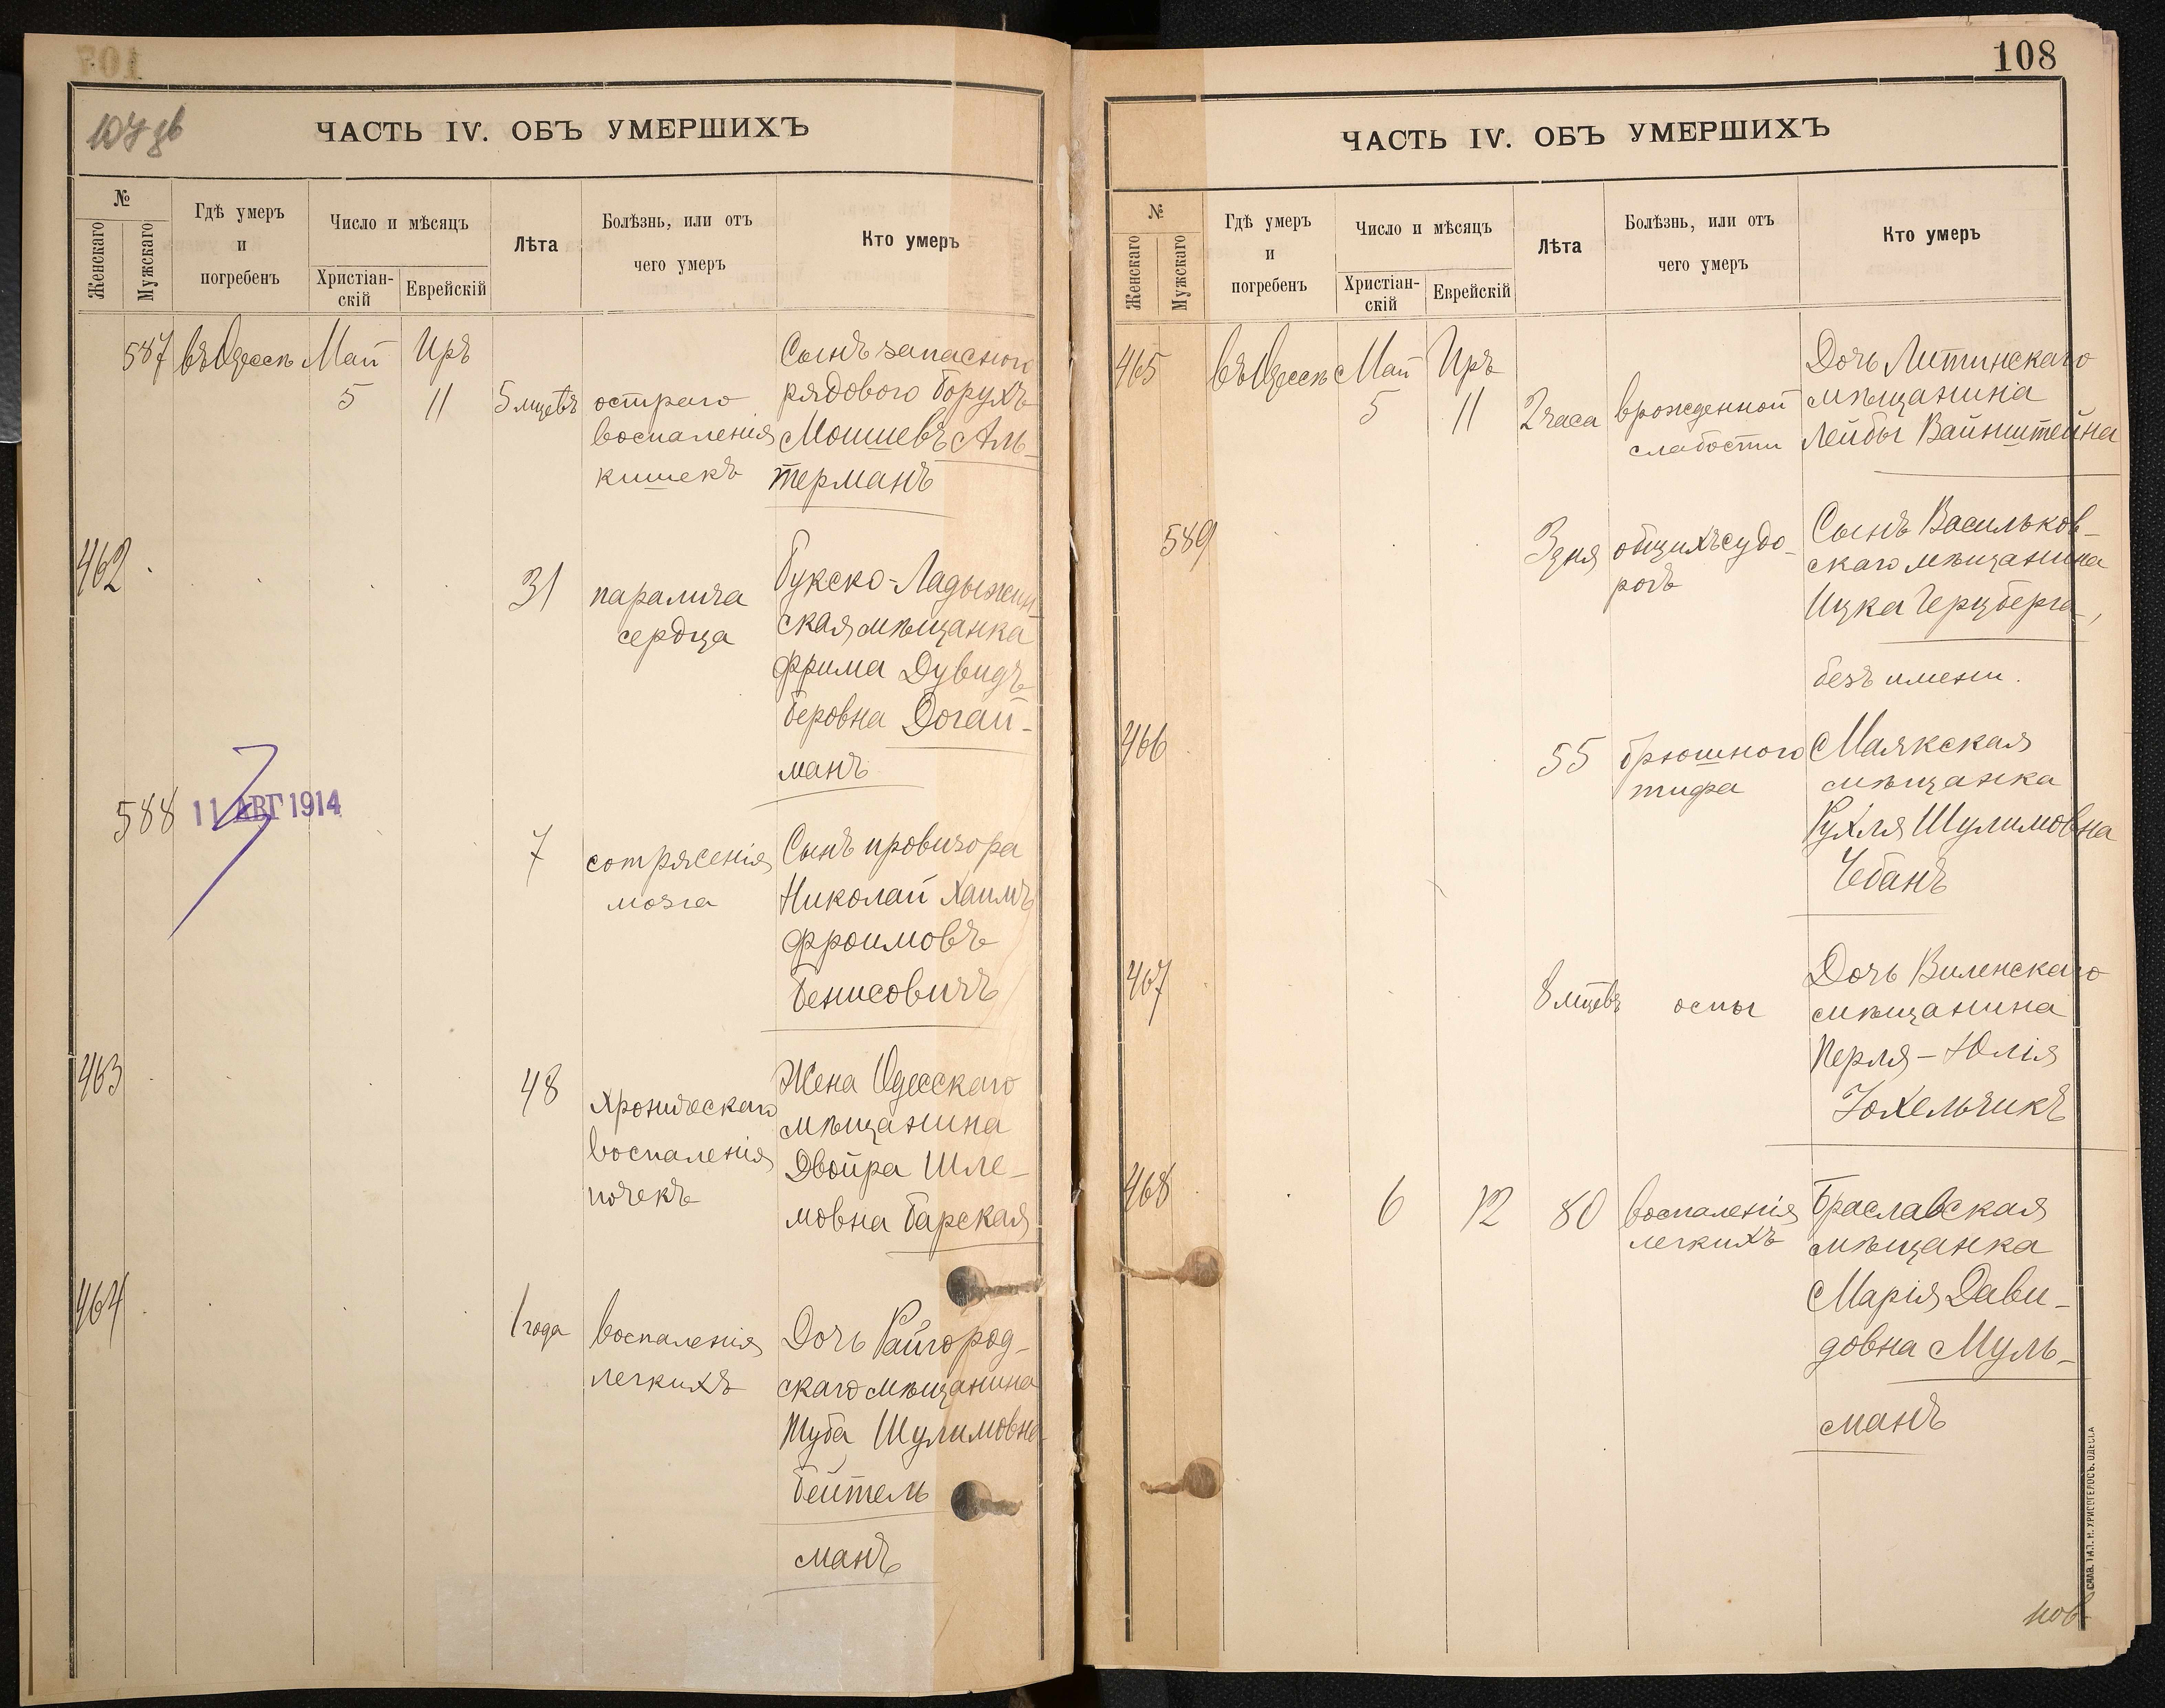 107 зв
ЧАСТЬ IV. ОБЪ УМЕРШИХЪ
№
Женскаго
Мужскаго
Гдѣ умеръ
и
погребенъ
Число и мѣсяцъ
Христіан-
скій
Еврейскій
Лѣта
Болѣзнь, или отъ
чего умеръ
Кто умеръ
587 въ Одессѣ Май Иръ
5 11 5 мцевъ
остраго
воспаленія
кишекъ
Сынъ запаснаго
рядового Борухъ
Мошшевъ Аль-
терманъ
462
31
паралича
сердца
Букско-Ладыжин
ская мѣщанка
Фрима Дувидъ
Беровна Догай-
манъ
588
11 АВГ 1914
7
сотрясенія
мозга
Сынъ провизора
Николай Хаимъ
Фроимовъ
Бенисовичъ
463
48
хроническаго
воспаленія
почекъ
Жена Одесскаго
мѣщанина
Двойра Шле-
мовна Барская
464
1 года
воспаленія
легкихъ
Дочь Райгород-
скаго мѣщанина
Туба Шулимовна
Бейтель
манъ
108
ЧАСТЬ IV. ОБЪ УМЕРШИХЪ
№
Женскаго
Мужскаго
Гдѣ умеръ
и
погребенъ
Число и мѣсяцъ
Христіан-
скій
Еврейскій
Лѣта
Болѣзнь, или отъ
чего умеръ
Кто умеръ
465 въ Одессѣ Май Иръ
5 11 2 часа
врожденной
слабости
Дочь Литинскаго
мѣщанина
Лейбы Вайнштейна
589
3 дня
общихъ судо-
рогъ
Сынъ Васильков-
скаго мѣщанина
Ицка Герцберга,
безъ имени.
466
55
брюшного
тифа
Маякская
мѣщанка
Рухля Шулимовна
Чебанъ
467
8 мцевъ
оспы
Дочь Виленскаго
мѣщанина
Перля-Юлія
Іохельчикъ
468
6 12 80
воспаленія
легкихъ
Браславская
мѣщанка
Марія Дави-
довна Муль-
манъ
СЛАВ. ТИП. Н. ХРИСОГЕЛОСЪ. ОДЕССА